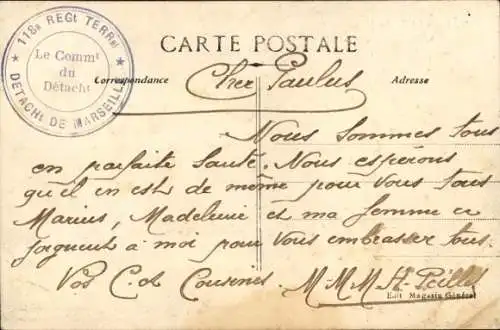 118e REGt TERRal
Le Commt
du
Détacht
DÉTACHt DE MARSEILLE
CARTE POSTALE
Correspondance
Adresse
Cher Paulus
Nous sommes tous
en parfaite santé. Nous espérons
qu'il en est de même pour vous tous
Marius, Madeleine et ma femme ce
joignent à moi pour vous embrasser tous.
Vos C. et Cousines M. M. M. H.
Edit Magasin Général